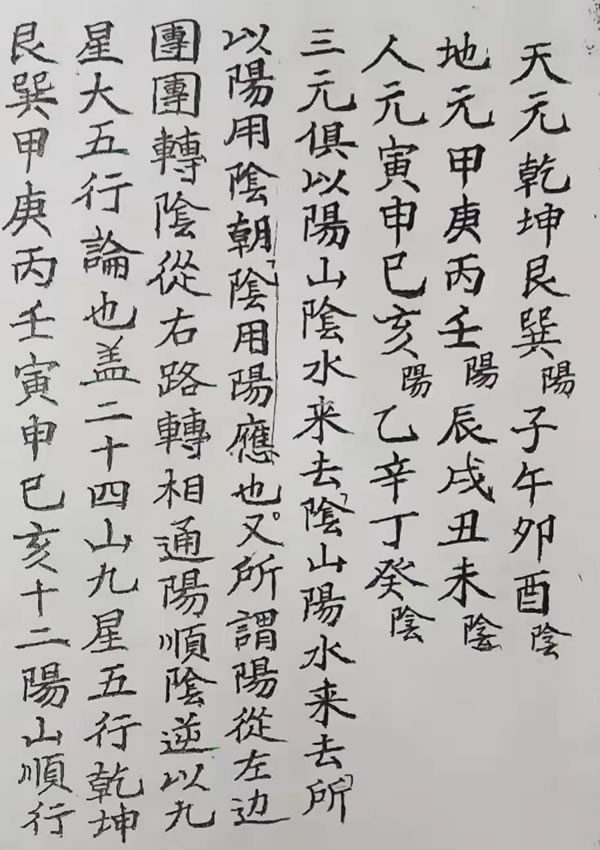 天元乾坤艮巽陽子午卯酉陰
地元甲庚丙壬陽辰戌丑未陰
人元寅申巳亥陽乙辛丁癸陰
三元俱以陽山陰水来去陰山陽水来去所
以陽用陰朝陰用陽應也。又所謂陽從左边
團團轉陰從右路轉相通陽順陰逆以九
星大五行論也盖二十四山九星五行乾坤
艮巽甲庚丙壬寅申巳亥十二陽山順行